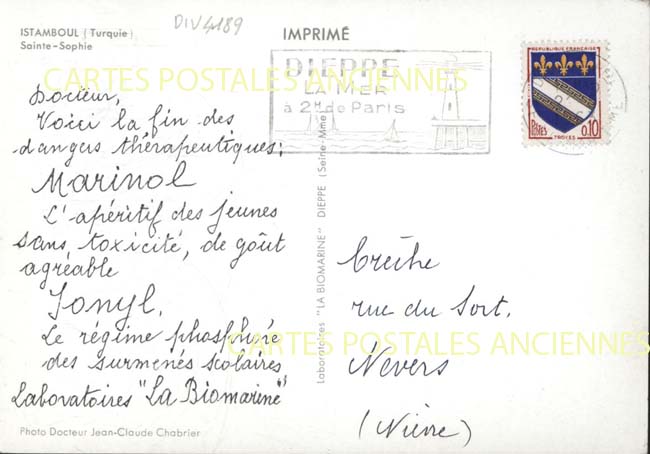 ISTAMBOUL (Turquie)
Sainte-Sophie
DIV4189
IMPRIMÉ
DIEPPE
LA MER
à 2H de Paris
RÉPUBLIQUE FRANÇAISE
POSTES 0,10
TROYES
CARTES POSTALES ANCIENNES
Docteur,
Voici la fin des
dangers thérapeutiques:
Marinol
L'apéritif des jeunes
sans toxicité, de goût
agréable
Ionyl.
Le régime phosphoré
des surmenés scolaires
Laboratoires "La Biomarine"
Photo Docteur Jean-Claude Chabrier
Laboratoires "LA BIOMARINE" DIEPPE (Seine-Mme)
Crèche
rue du Sort.
Nevers
(Nièvre)
CARTES POSTALES ANCIENNES